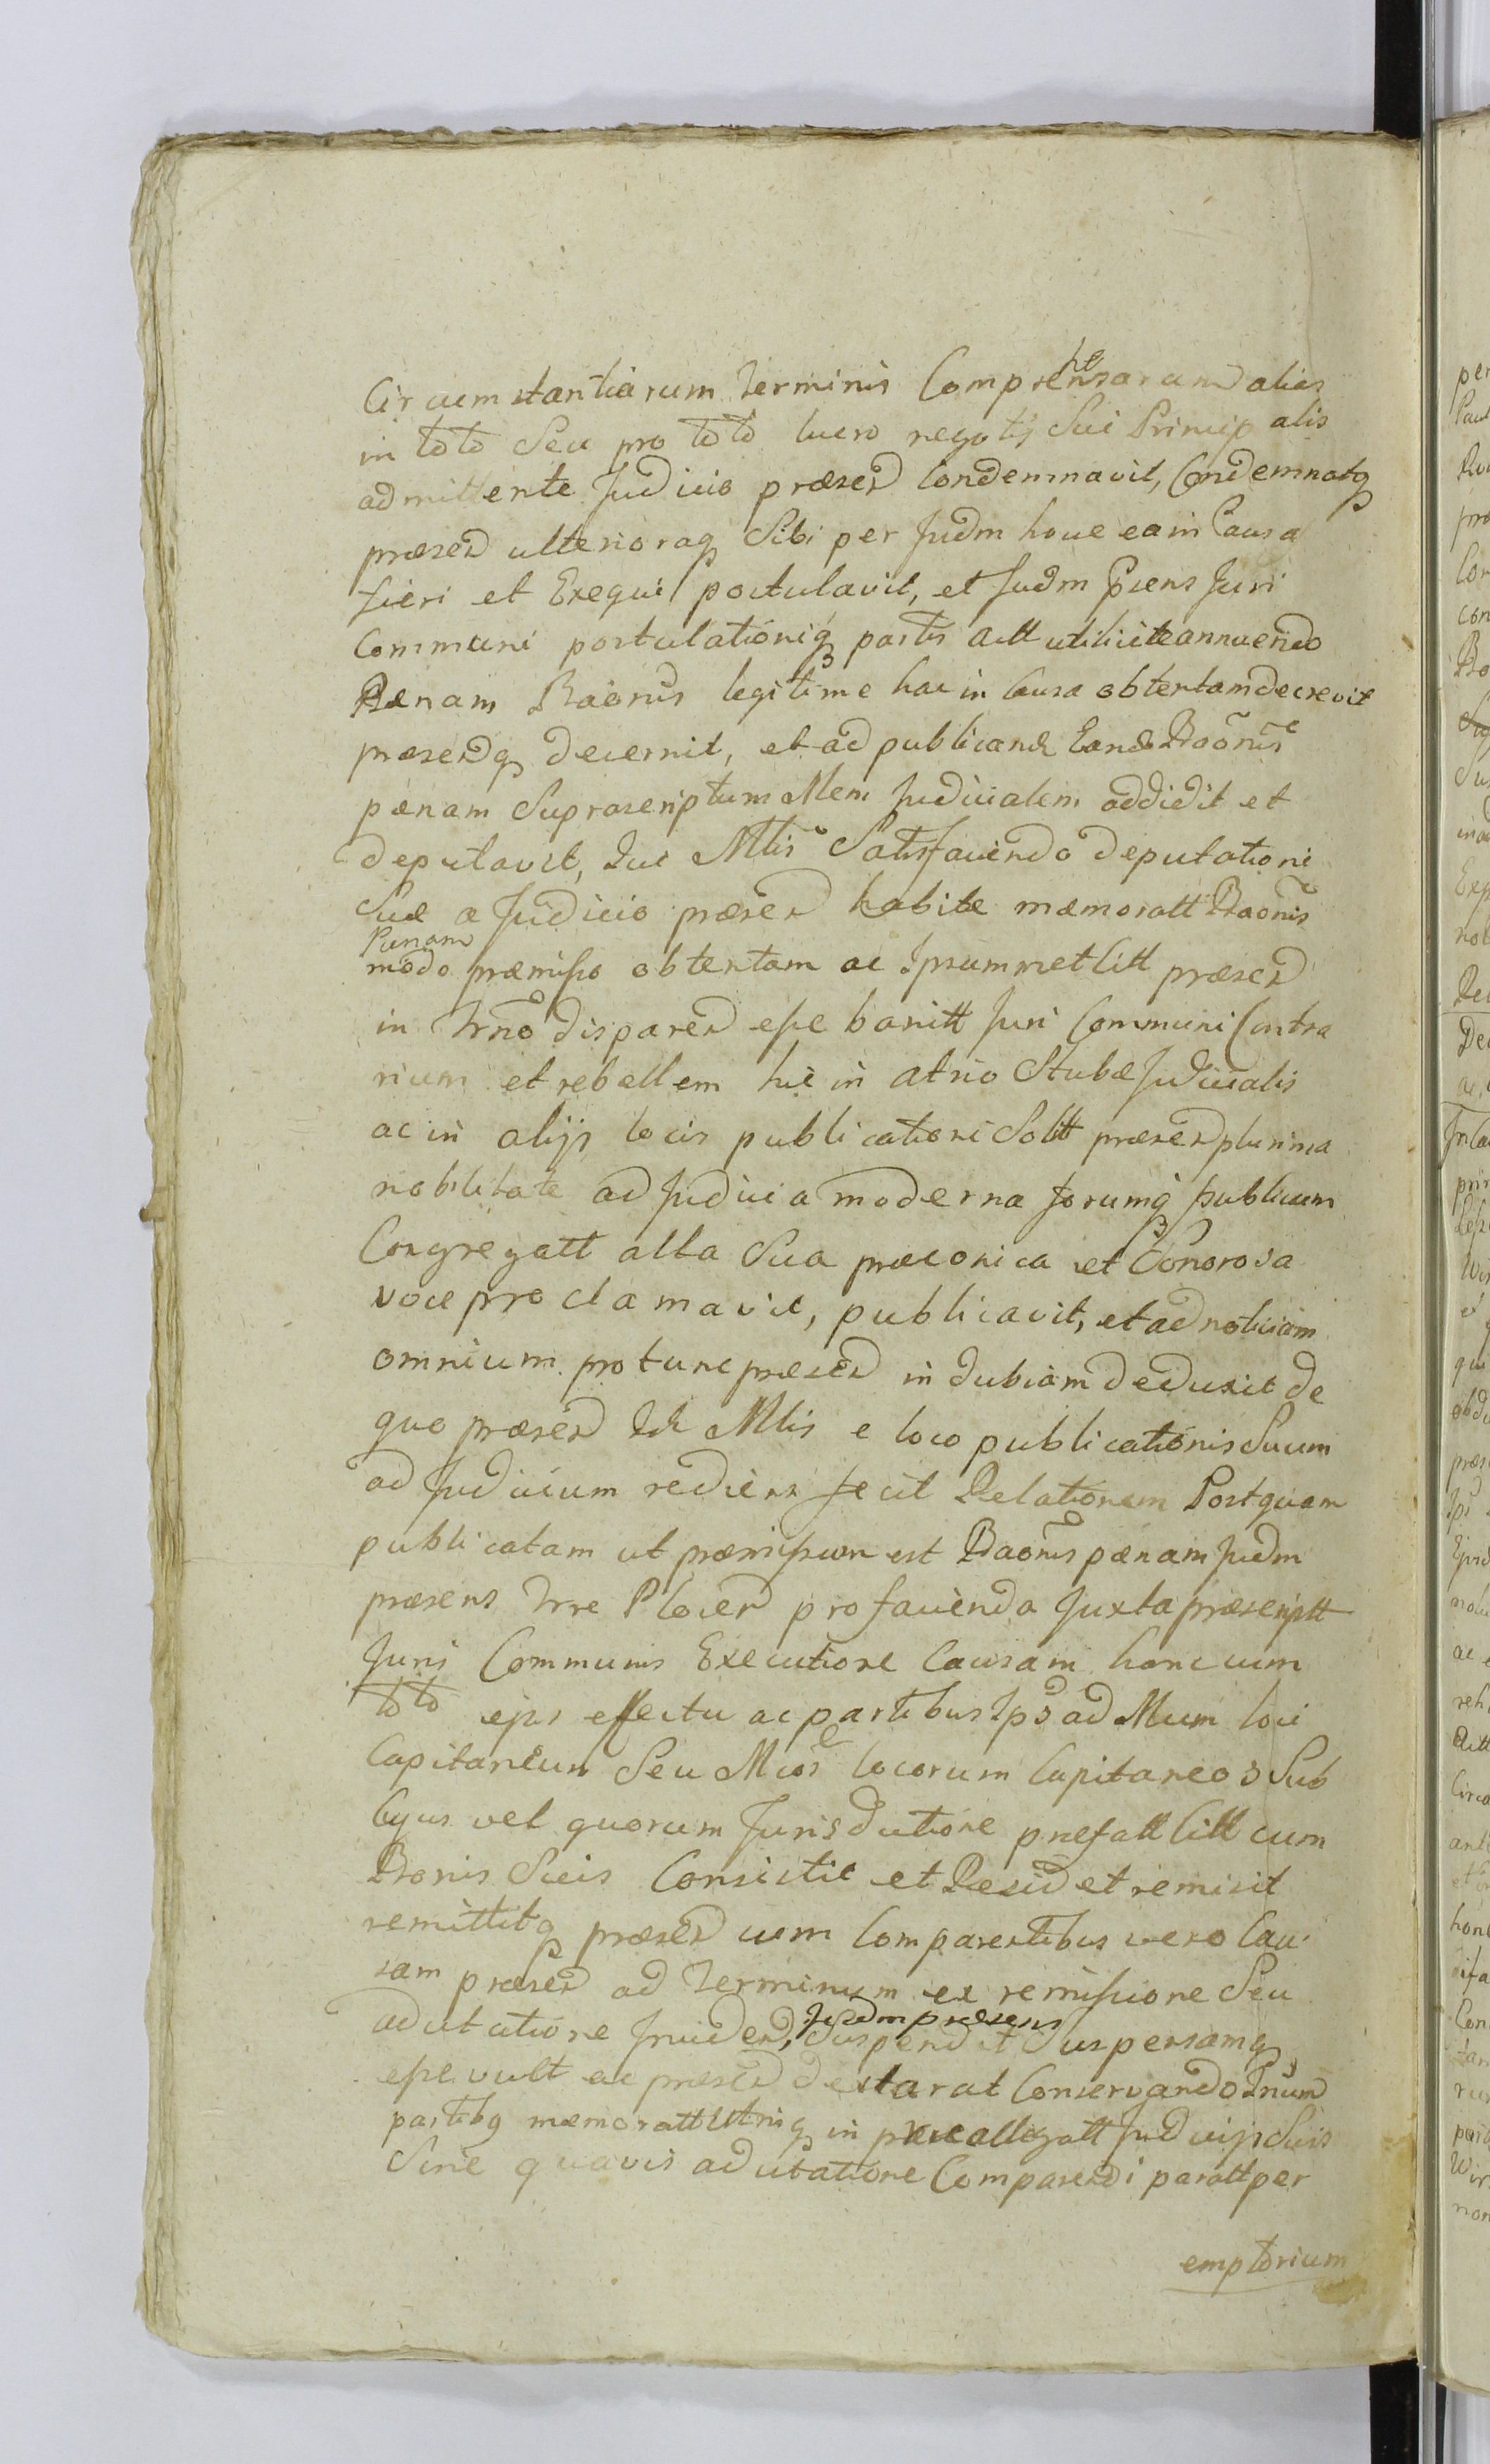 Circumstantiarum terminis Comprehensarum alias
in toto Seu pro toto lucro negotij Sui Principalis
admittente Judicio præsen condemnavit, Condemnatq
præsen ulterioraq Sibi per Judm hocce ea in Causa
fieri et Exequi postulavit, et Judm Psens Juri
Communi postulationiq partis Actt annuendo
Pœnam Baonis legitime hac in Causa obtentam decrevit
præsenq decernit, et ad publicand Eand Baonis
pœnam Suprascriptum Mlem Judicialem addidit et
deputavit, Qui Mtlis Satisfaciendo deputationi
Suæ a Judicio præsen habitæ mæmoratt Baonis
Pœnam
modo præmisso obtentam ac Ipsummet Citt præsen
in Trno disparen esse banitt Juri Communi Contra
rium et rebellem hic in atrio Stubæ Judicialis
ac in alijs locis publicationi Solitt præsen plurima
nobilitate ad Judicia moderna forumq publicum
Congregatt alta Sua præconica et Sonorosa
voce proclamavit, publicavit, et ad notitiam
omnium pro tunc præsen indubiam deduxit de
quo præsen Idē Mlis e loco publicationis Suum
ad Judicium rediens fecit Relationem Postquam
publicatam ut præmissum est Baonis pœnam Judm
præsens Trre Plocen pro facienda Juxta præscriptt
Juris Communis Executione Causam hanc cum
toto ejus effectu ac partibus Ipś ad Mcum loci
Capitaneum Seu Mcos locorum Capitaneos Sub
Cujus vel quorum Jurisdictione præfatt Citt cum
Bonis Suis Consistit et Resid et remisit
remittitq præsen cum Comparentibus vero Cau
sam præsen ad Terminum ex remissione Seu
adcitatione inciden, Judm præsens Suspendit Suspensamq
esse vult ac præsen declarat Conservando Trnum
partibq mæmoratt Utrisq in præallegatt Judicijs Suis
Sine quavis adcitatione Comparendi paratt per
emptorium